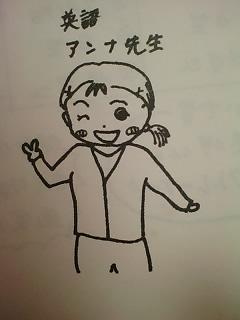 英語
アンナ先生